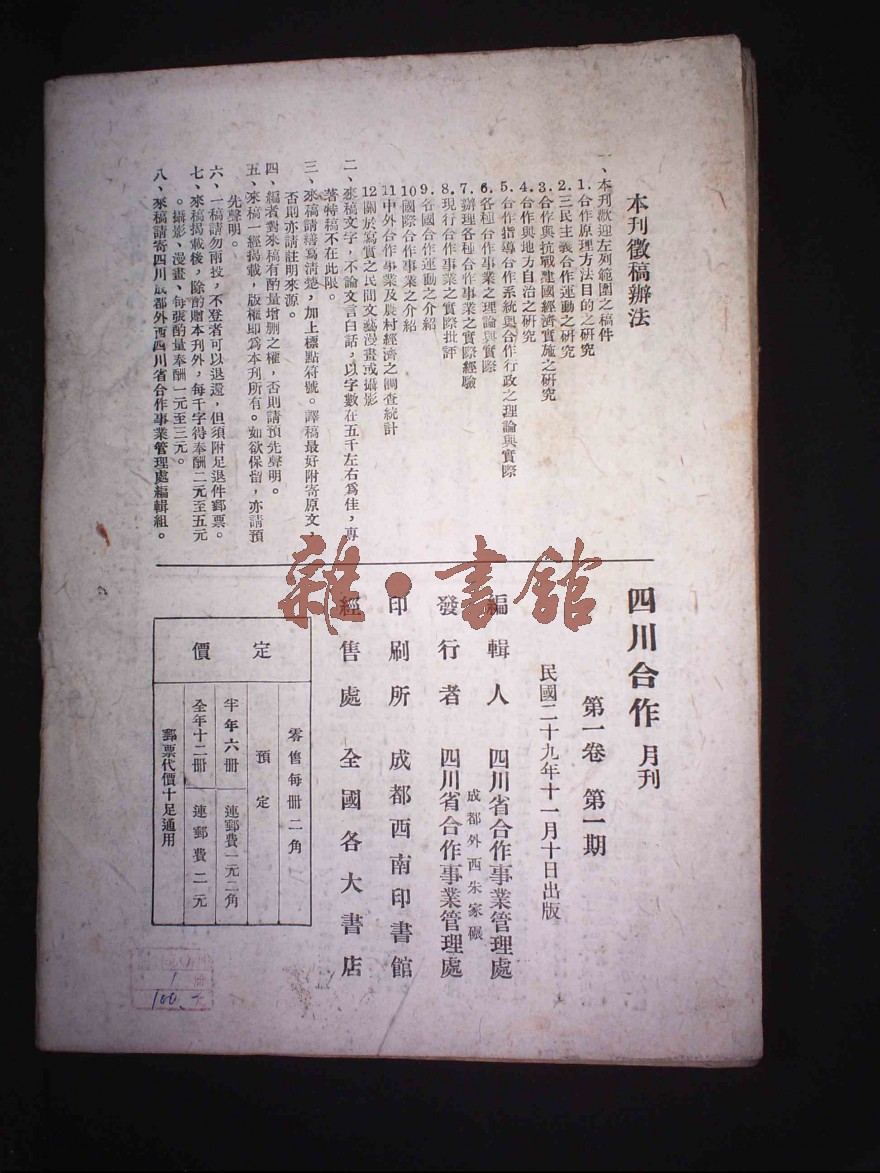 本刊徵稿辦法
一、本刊歡迎左列範圍之稿件
1.合作原理方法目的之研究
2.三民主義合作運動之研究
3.合作與抗戰建國經濟實施之研究
4.合作與地方自治之研究
5.合作指導合作系統與合作行政之理論與實際
6.各種合作事業之理論與實際
7.辦理各種合作事業之實際經驗
8.現行合作事業之實際批評
9.各國合作運動之介紹
10國際合作事業之介紹
11中外合作事業及農村經濟之調查統計
12關於寫實之民間文藝漫畫或攝影
二、來稿文字，不論文言白話，以字數在五千左右爲佳，專
著特稿不在此限。
三、來稿請繕寫清楚，加上標點符號。譯稿最好附寄原文，
否則亦請註明來源。
四、編者對來稿有酌量增刪之權，否則請預先聲明。
五、來稿一經揭載，版權即爲本刊所有。如欲保留，亦請預
先聲明。
六、一稿請勿兩投，不登者可以退還，但須附足退件郵票。
七、來稿揭載後，除酌贈本刊外，每千字得奉酬二元至五元
。攝影、漫畫、每張酌量奉酬一元至三元。
八、來稿請寄四川成都外西四川省合作事業管理處編輯組。
四川合作 月刊
第一卷 第一期
民國二十九年十一月十日出版
編輯人 四川省合作事業管理處
成都外西朱家碾
發行者 四川省合作事業管理處
印刷所 成都西南印書館
經售處 全國各大書店
定價
零售每冊二角
預定
半年六冊 連郵費一元二角
全年十二冊 連郵費二元
郵票代價十足通用
雜·書館
1 冊
100